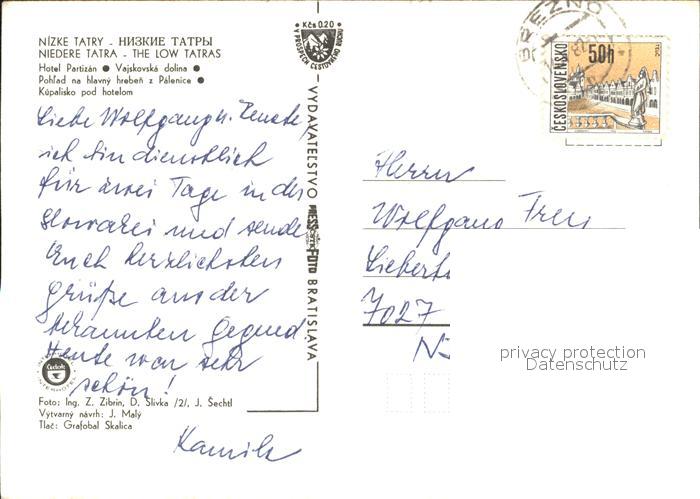 NÍZKE TATRY - НИЗКИЕ ТАТРЫ
NIEDERE TATRA - THE LOW TATRAS
Hotel Partizán ● Vajskovská dolina ●
Pohľad na hlavný hrebeň z Pálenice ●
Kúpalisko pod hotelom
Liebe Wolfgang u. Renate,
ich bin dienstlich
für zwei Tage in der
Slowakei und sende
Euch herzlichsten
Grüße aus der
bekannten Gegend
Heute war sehr
schön!
Kamila
Foto: Ing. Z. Zibrin, D. Slivka /2/, J. Šechtl
Výtvarný návrh: J. Malý
Tlač: Grafobal Skalica
Kčs 0.20
VYDAVATEĽSTVO PRESSFOTO BRATISLAVA
BREZNO
ČESKOSLOVENSKO
50h
Herrn
Wolfgang
7027
privacy protection
Datenschutz